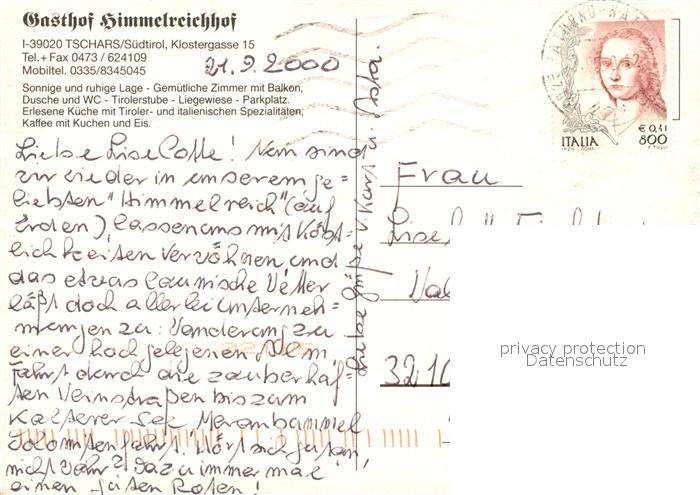 Gasthof Himmelreichhof
I-39020 TSCHARS/Südtirol, Klostergasse 15
Tel.+ Fax 0473 / 624109
Mobiltel. 0335/8345045
21.9.2000
Sonnige und ruhige Lage - Gemütliche Zimmer mit Balkon,
Dusche und WC - Tirolerstube - Liegewiese - Parkplatz.
Erlesene Küche mit Tiroler- und italienischen Spezialitäten,
Kaffee mit Kuchen und Eis.
Liebe Liselotte! Nun sind
wir wieder in unserem ge=
liebten "Himmelreich" (auf
Erden), lassen uns mit Köst=
lichkeiten verwöhnen und
das etwas launische Wetter
läßt doch allerlei unterneh=
mungen zu: Wanderung zu
einer hochgelegenen Alm,
Fahrt durch die zauberhaf=
ten Weinstraßen bis zum
Kalterer See, Meranbummel
Dolomitenfahrt. Hört sich gut an,
nicht wahr? Dazu immer mal
einen guten Roten!
Liebe Grüße v. Kurt u.
Frau
32
ITALIA
€ 0,41
800
privacy protection
Datenschutz